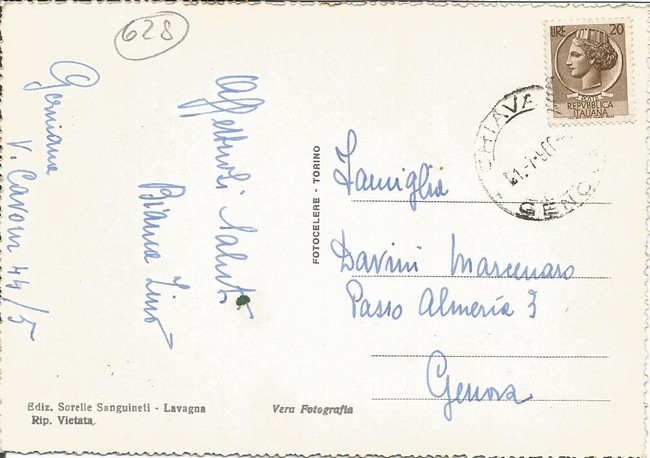 628
Affettuosi Saluti
Biana Lino
Germiana
V. Cavour 44/5
FOTOCELERE - TORINO
LIRE 20
POSTE
REPVBBLICA
ITALIANA
CHIAVA
GENO
Famiglia
Davini Marcenaro
Passo Almeria 3
Genova
Ediz. Sorelle Sanguineti - Lavagna
Rip. Vietata
Vera Fotografia